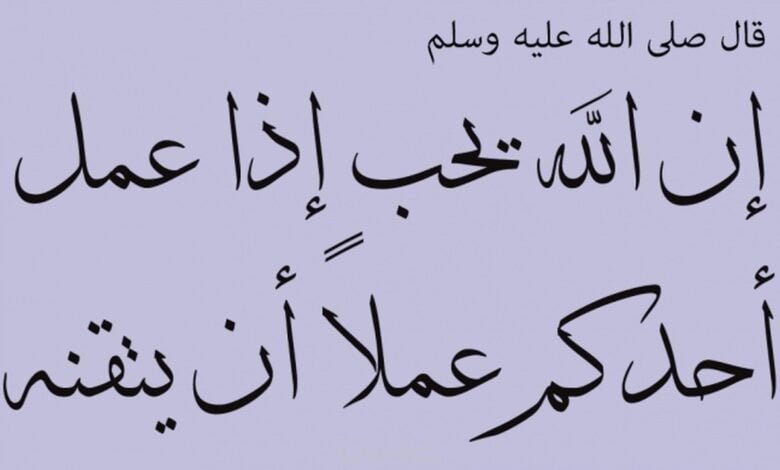 قال صلى الله عليه وسلم
إن الله يحب إذا عمل
أحدكم عملاً أن يتقنه